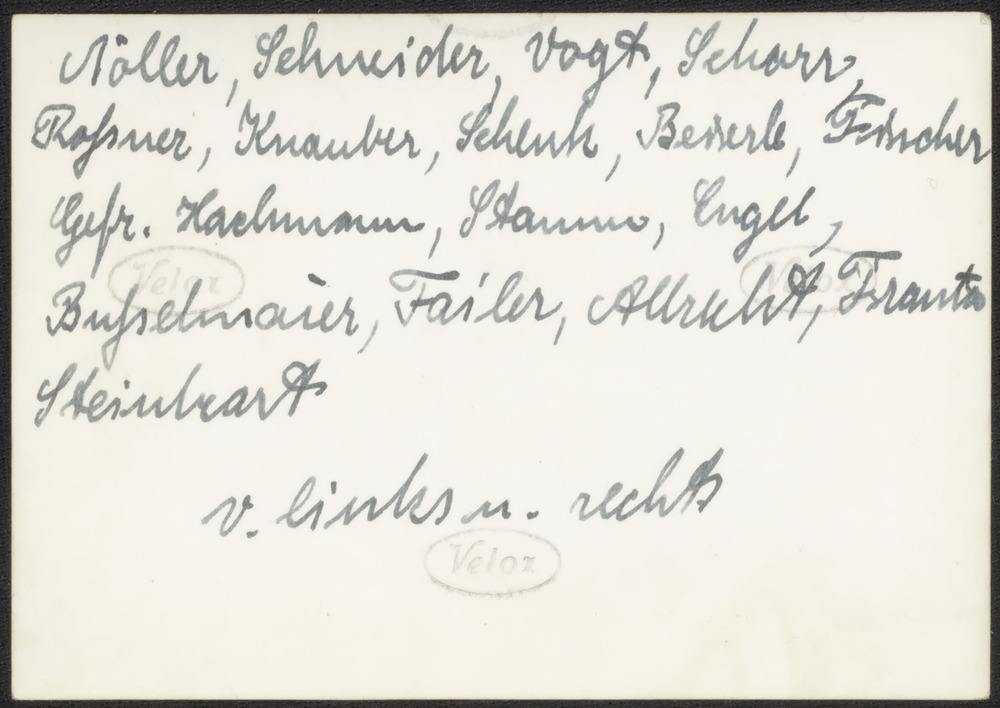 Nöller, Schneider, Vogt, Scharr,
Roßner, Knauber, Schenk, Beierle, Fischer
Gefr. Hachmann, Stamm, Engel,
Bußelmaier, Failer, Albrecht, Frantz
Steinhart
v. links n. rechts
Velox